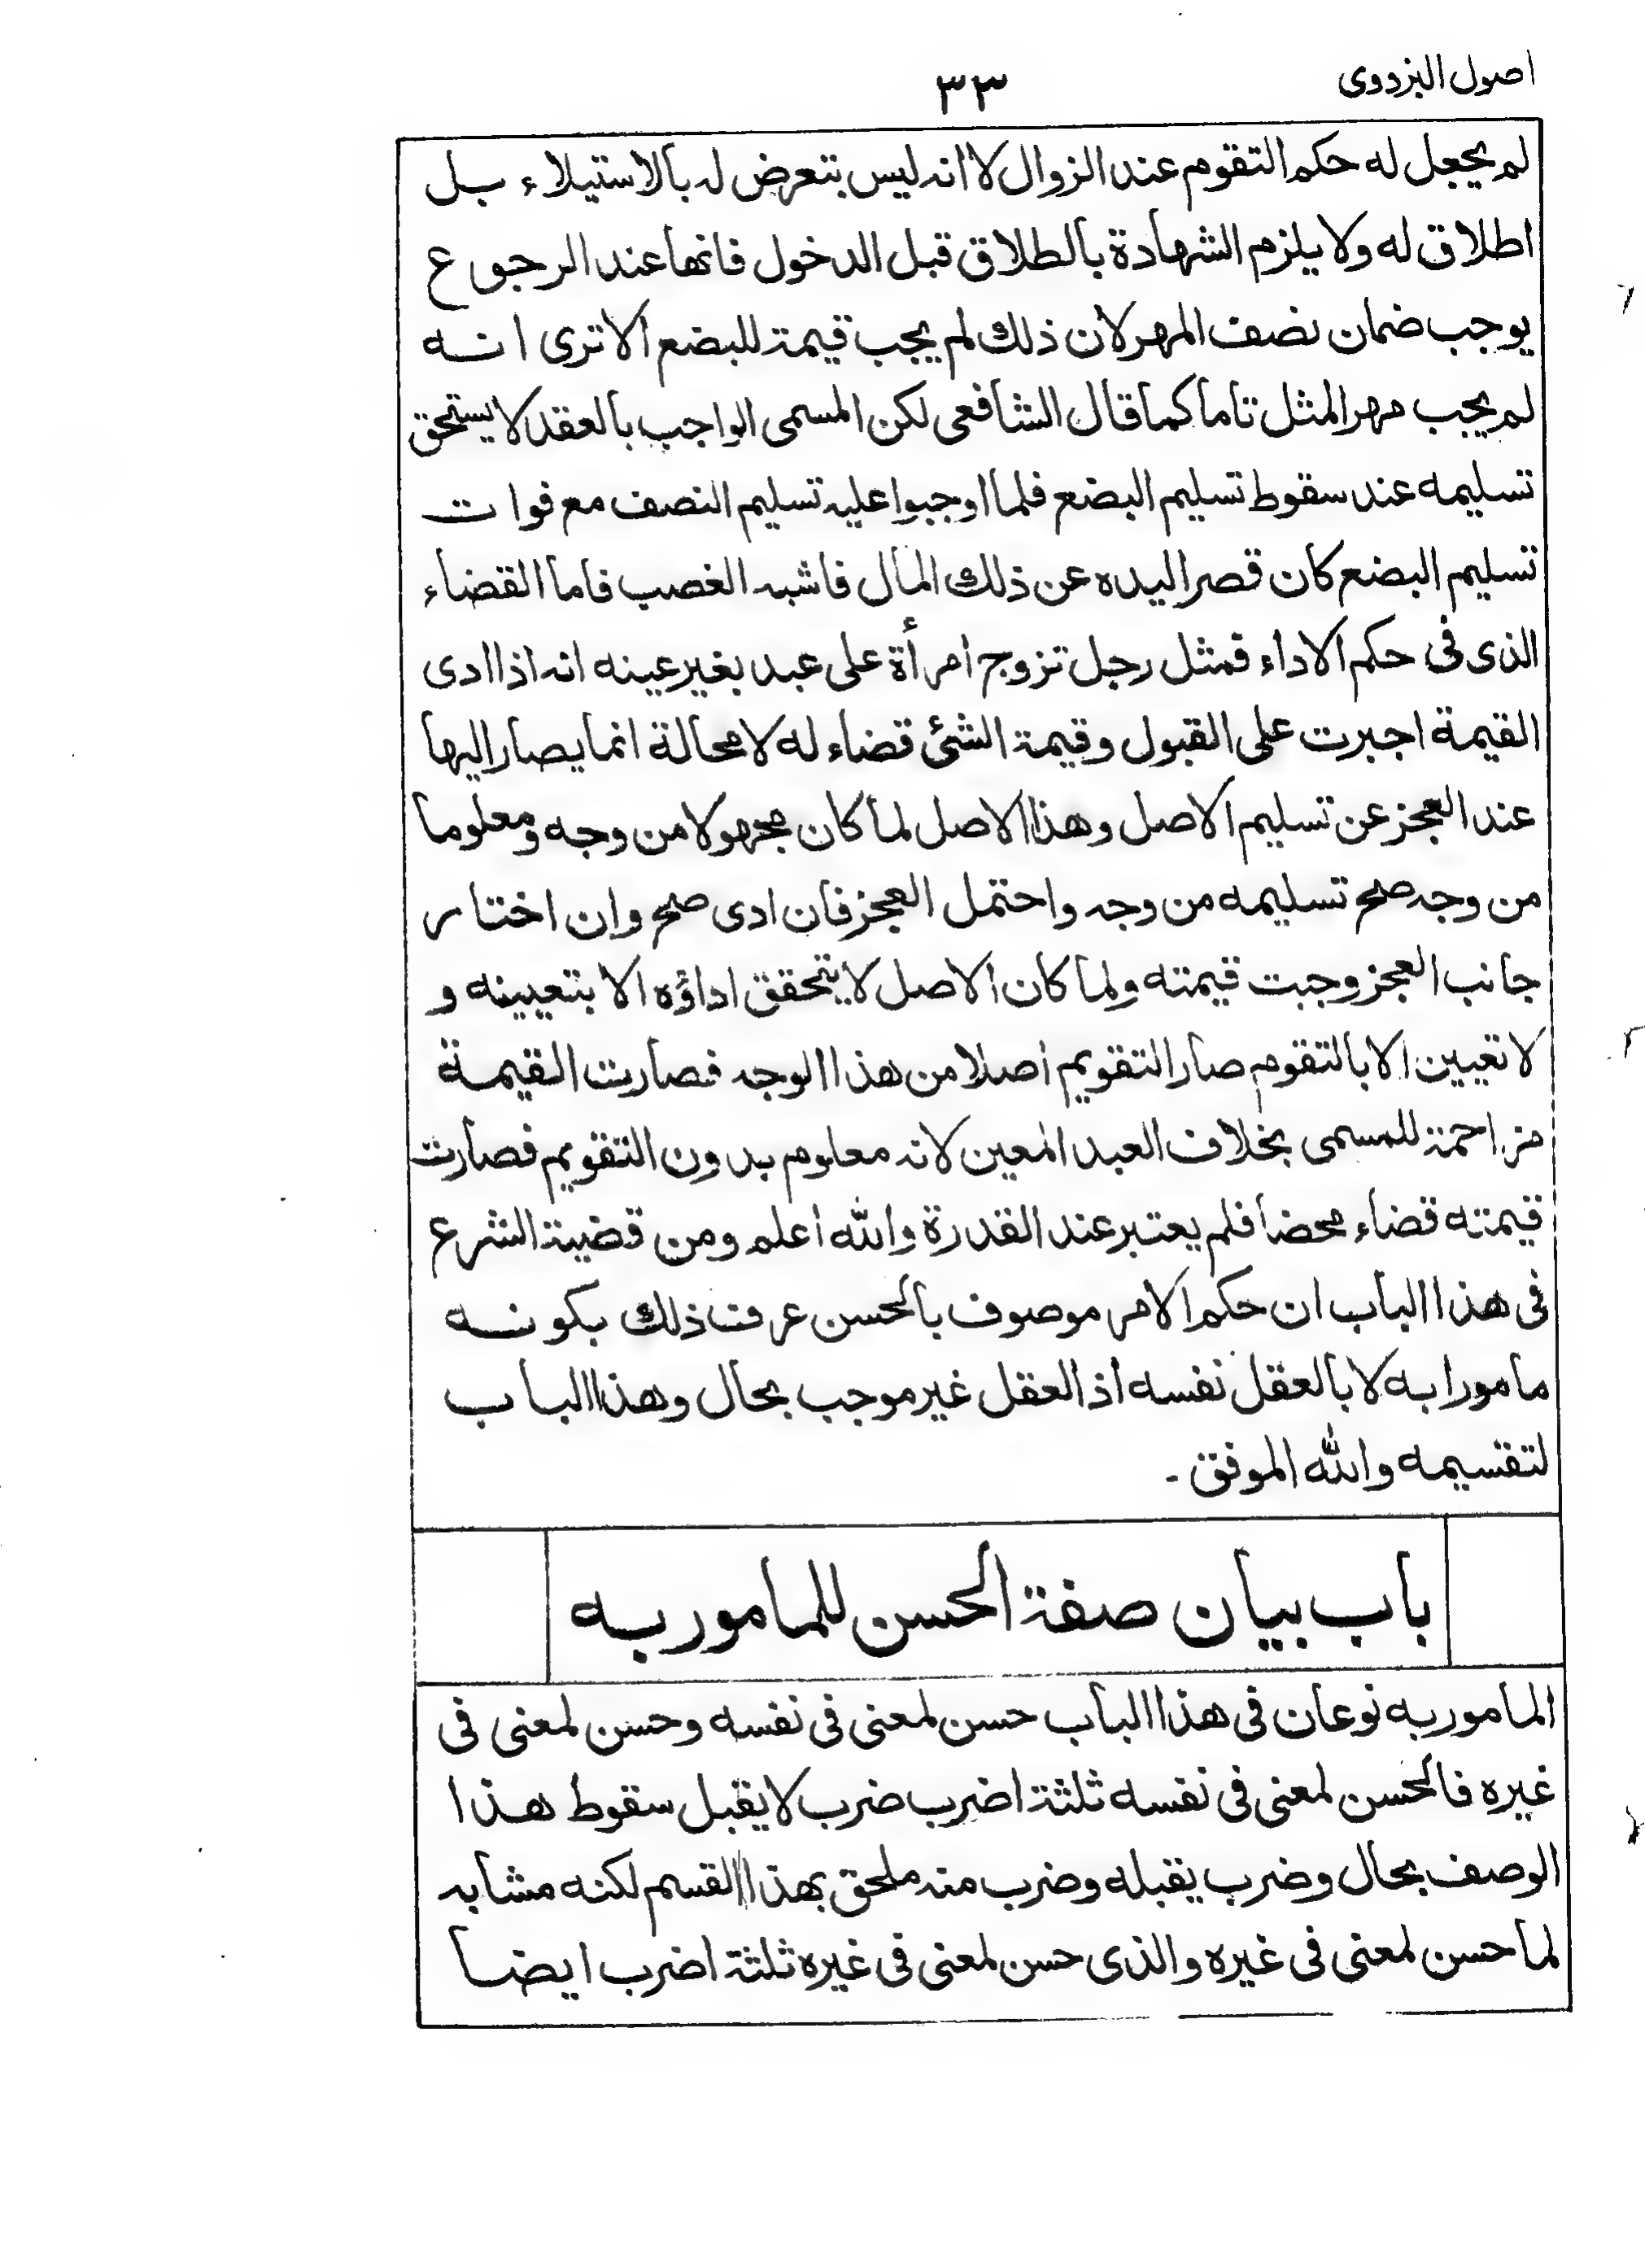 اصول البزدوى
٣٣
لم يجعل له حكم التقوم عند الزوال لا انه ليس بتعرض له بالاستيلاء بل
اطلاق له ولا يلزم الشهادة بالطلاق قبل الدخول فانها عند الرجوع
يوجب ضمان نصف المهر لان ذلك لم يجب قيمة للبضع الا ترى انه
لم يجب مهر المثل تاما كما قال الشافعى لكن المسمى الواجب بالعقد لا يستحق
تسليمه عند سقوط تسليم البضع فلما اوجبوا عليه تسليم النصف مع فوات
تسليم البضع كان قصرا ليده عن ذلك المال فاشبه الغصب فاما القضاء
الذى فى حكم الاداء فمثل رجل تزوج امرأة على عبد بغير عينه انه اذا ادى
القيمة اجبرت على القبول وقيمة الشئ قضاء له لا محالة انما يصار اليها
عند العجز عن تسليم الاصل وهذا الاصل لما كان مجهولا من وجه ومعلوما
من وجه صح تسليمه من وجه واحتمل العجز فان ادى صح وان اختار
جانب العجز وجبت قيمته ولما كان الاصل لا يتحقق اداؤه الا بتعيينه و
لا تعيين الا بالتقوم صار التقويم اصلا من هذا الوجه فصارت القيمة
مزاحمة للمسمى بخلاف العبد المعين لانه معلوم بدون التقويم فصارت
قيمته قضاء محضا فلم يعتبر عند القدرة والله اعلم ومن قضية الشرع
فى هذا الباب ان حكم الامر موصوف بالحسن عرفت ذلك بكونه
مامورا به لا بالعقل نفسه اذ العقل غير موجب بحال وهذا الباب
لتقسيمه والله الموفق -
باب بيان صفة الحسن للمامور به
المامور به نوعان فى هذا الباب حسن لمعنى فى نفسه وحسن لمعنى فى
غيره فالحسن لمعنى فى نفسه ثلثة اضرب ضرب لا يقبل سقوط هذا
الوصف بحال وضرب يقبله وضرب منه ملحق بهذا القسم لكنه مشابه
لما حسن لمعنى فى غيره والذى حسن لمعنى فى غيره ثلثة اضرب ايضا